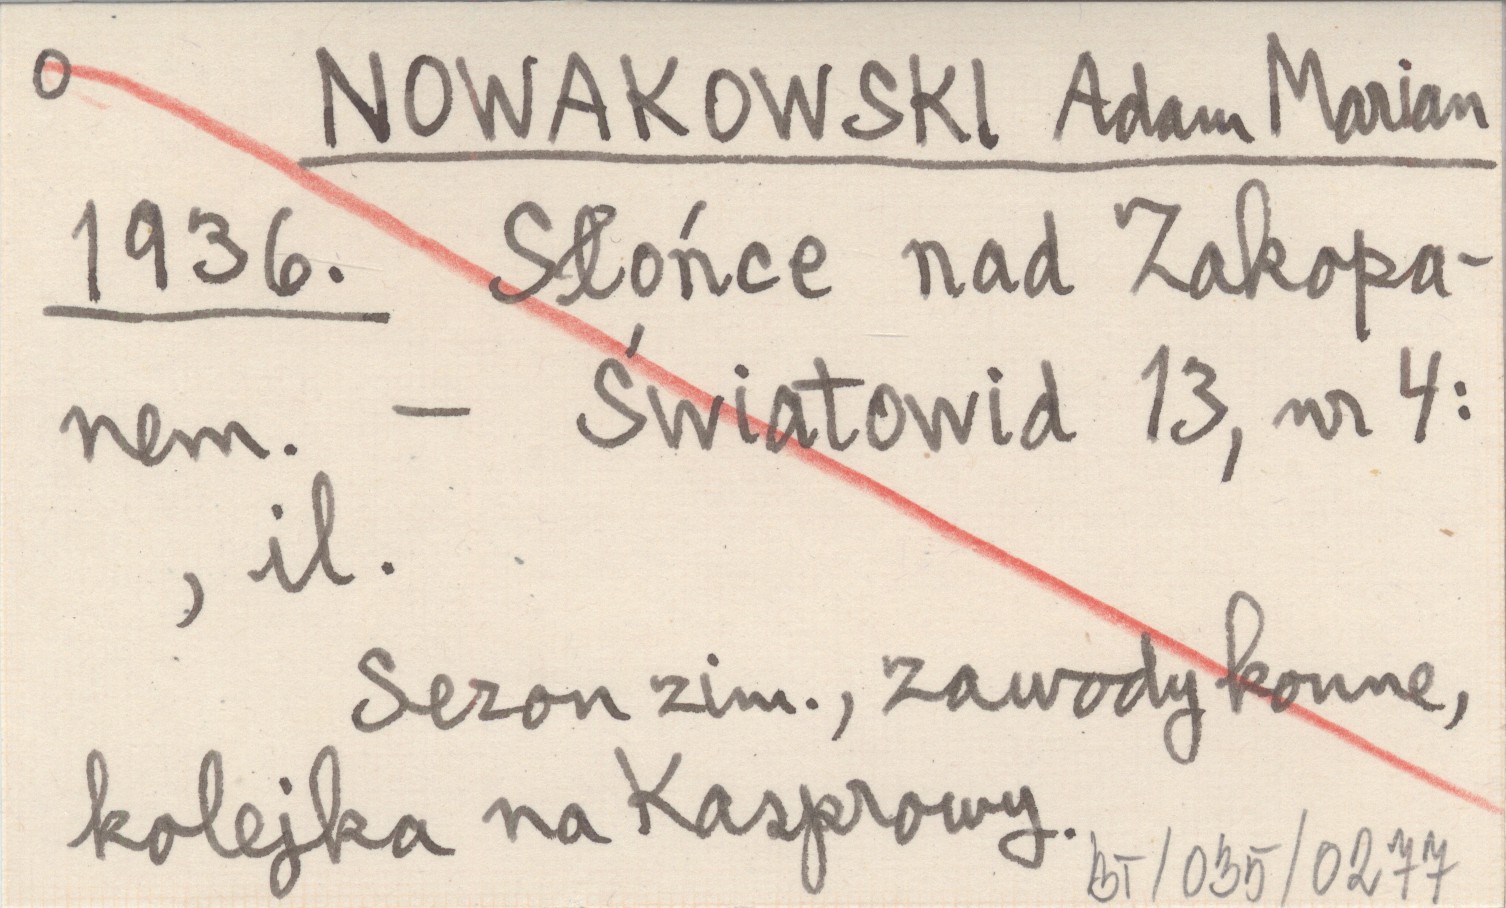 O NOWAKOWSKI Adam Marian
1936. Słońce nad Zakopa-
nem. — Światowid 13, nr 4:
, il.
Sezon zim., zawody konne,
kolejka na Kasprowy.
BT/035/0277